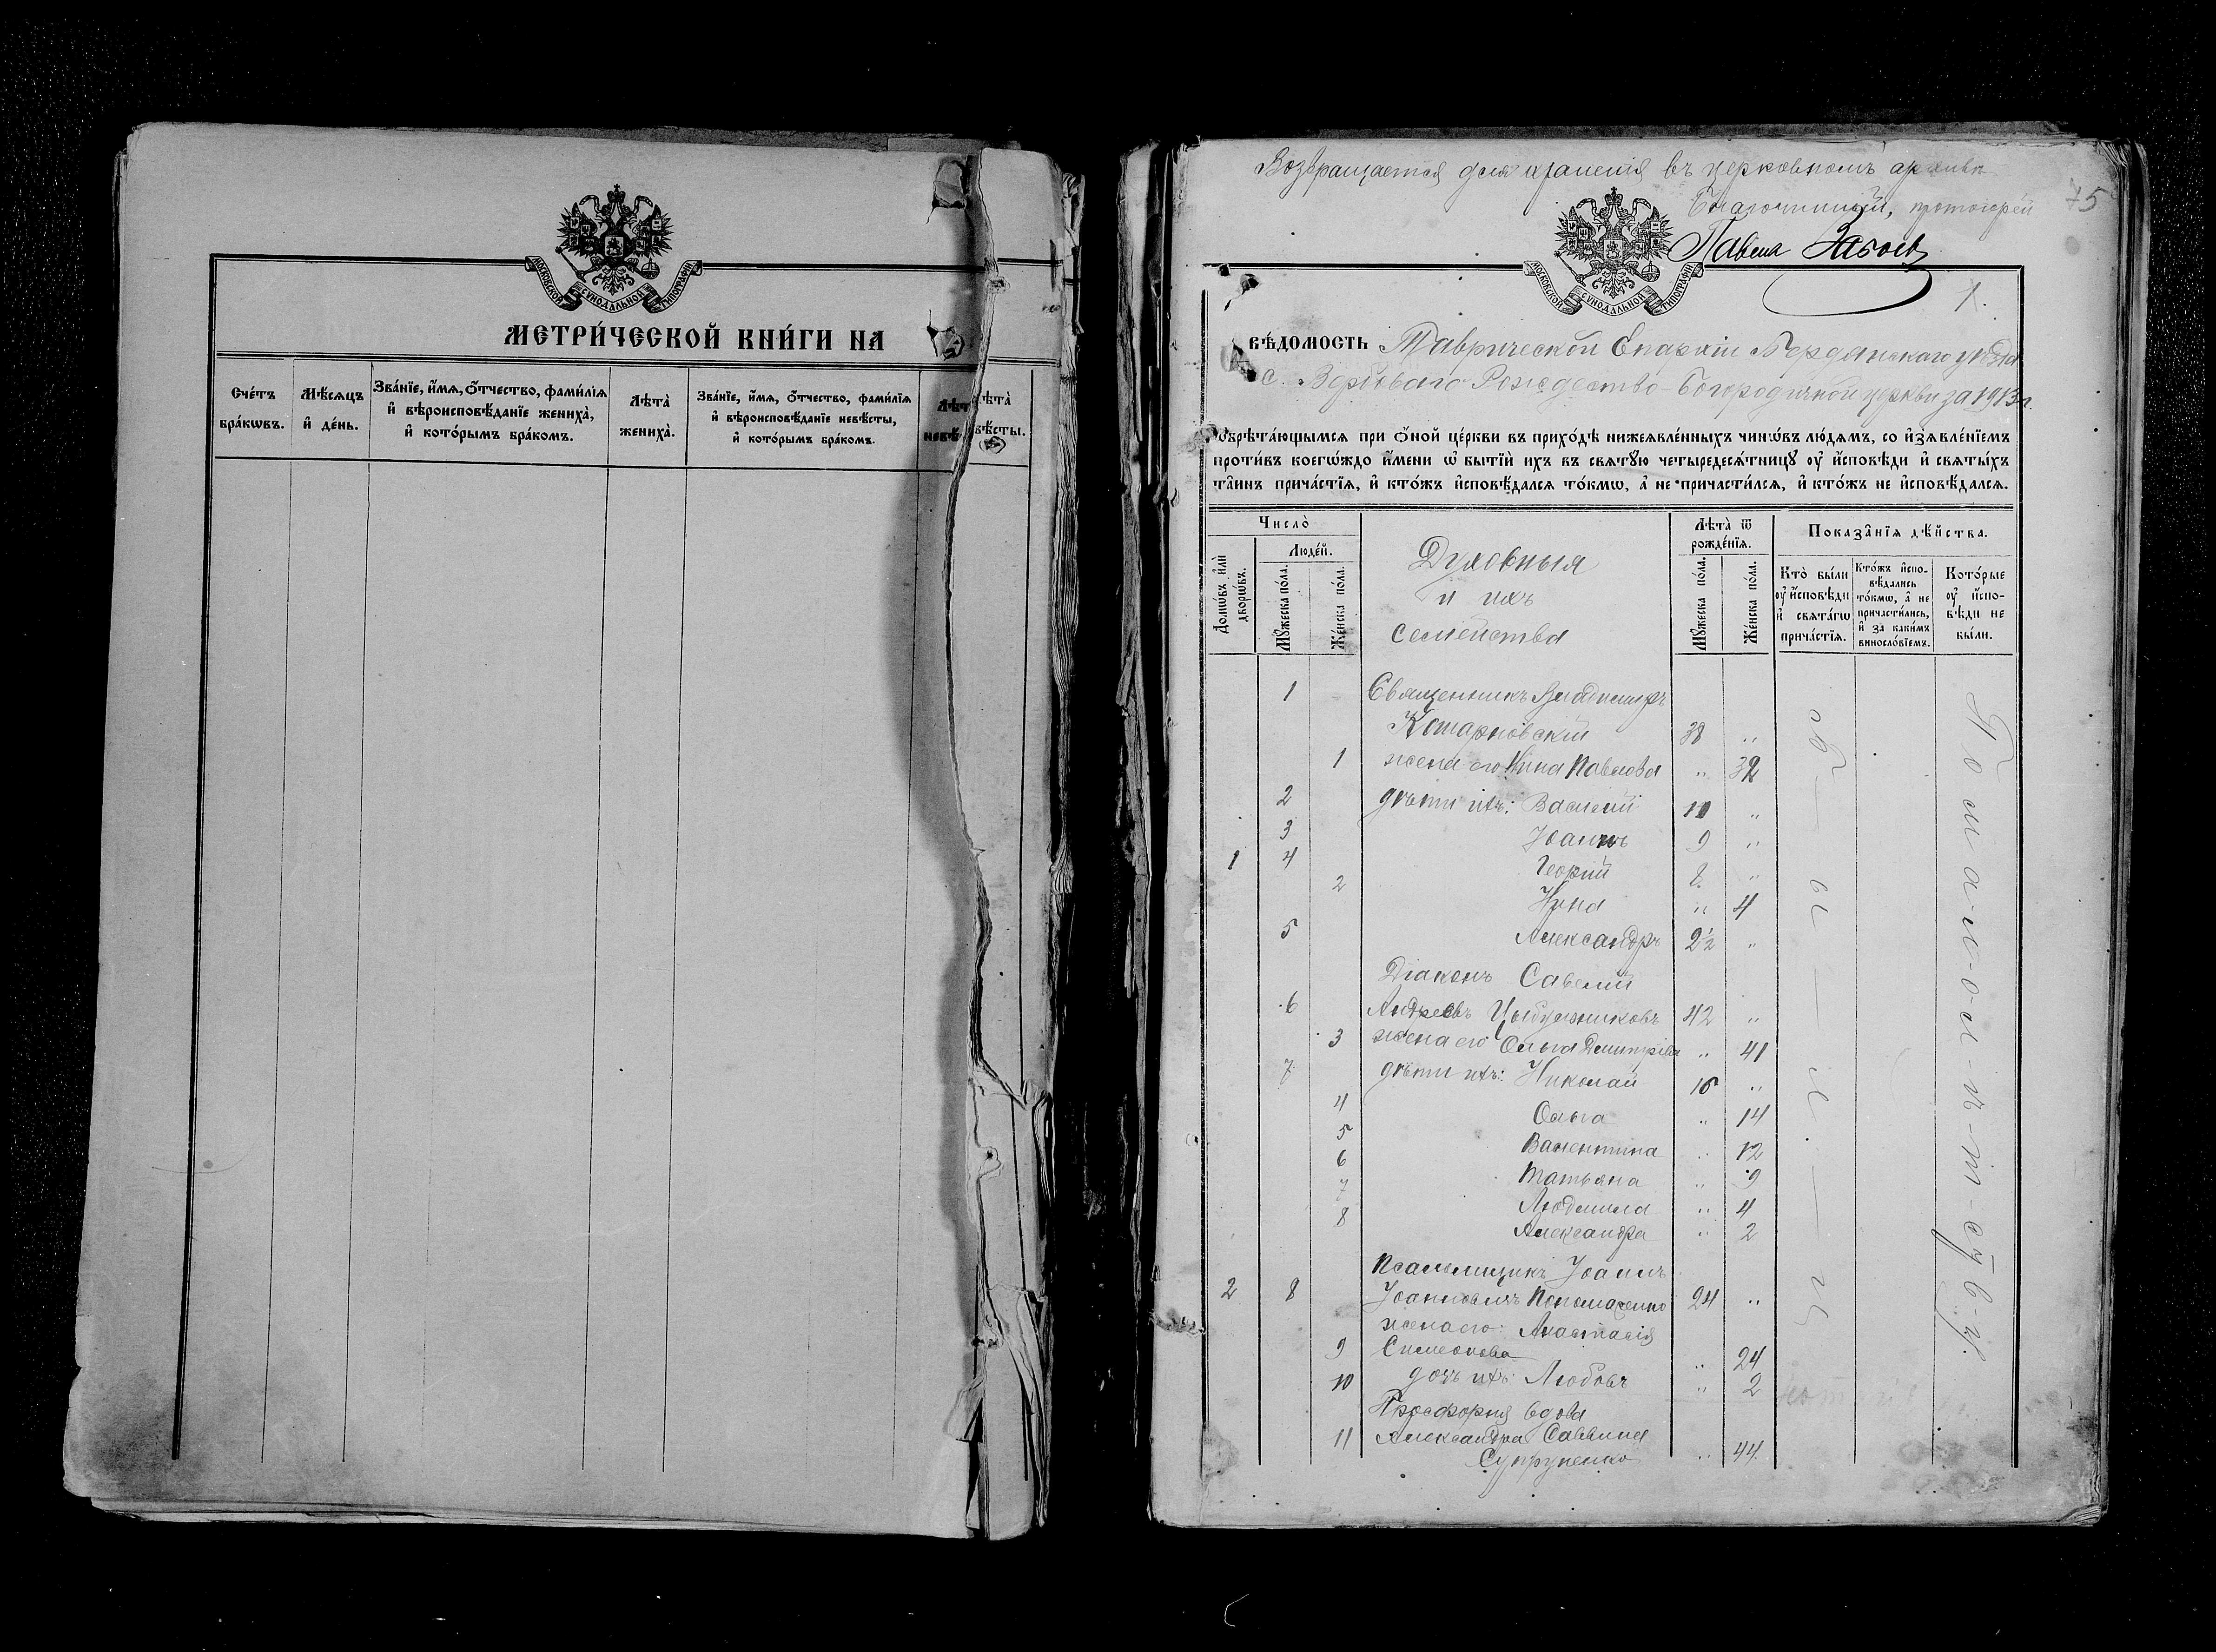 МОСКОВСКОЙ СУНОДАЛЬНОЙ ТИПОГРАФІИ
МЕТРИ́ЧЕСКОЙ КНИ́ГИ НА
Сче́тъ бра́кѡвъ.
Мѣ́сяцъ и҆ де́нь.
Зва́нїе, и҆́мѧ, ѻ҆́тчество, фами́лїѧ и҆ вѣроисповѣ́данїе жениха̀, и҆ кото́рымъ бра́комъ.
Лѣ́та жениха̀.
Зва́нїе, и҆́мѧ, ѻ҆́тчество, фами́лїѧ и҆ вѣроисповѣ́данїе невѣ́сты, и҆ кото́рымъ бра́комъ.
Лѣт
невѣ
лѣ́та
вѣ́сты.
Возвращается для храненія въ церковномъ архивѣ
75
Благочинный, протоіерей
Павелъ
МОСКОВСКОЙ СУНОДАЛЬНОЙ ТИПОГРАФІИ
1.
ВѢ́ДОМОСТЬ Таврической Епархіи Бердянскаго уѣзда
с. Рождество-Богородичной церкви за 1913 г.
Ѡбрѣта́ющымсѧ при ѻ҆́ной це́ркви въ прихо́дѣ нижеѧвле́нныхъ чинѡ́въ лю́демъ, со и҆з̾ѧвле́нїемъ
проти́въ коегѡ́ждо и҆́мени ѡ҆ бытїѝ и҆хъ въ свѧтꙋ́ю четыредесѧ́тницꙋ ᲂу҆ и҆́сповѣди и҆ свѧты́хъ
та̑инъ прича́стїѧ, и҆ кто́жъ и҆сповѣ́далсѧ то́кмѡ, а҆ не причасти́лсѧ, и҆ кто́жъ не и҆сповѣ́далсѧ.
Число̀
Домѡ́въ и҆лѝ дворѡ́въ.
Люде́й.
Мꙋ́жеска по́ла.
Же́нска по́ла.
Духовныя
и ихъ
семейства
Лѣ́та ѿ рожде́нїѧ.
Мꙋ́жеска по́ла.
Же́нска по́ла.
Показа̑нїѧ дѣ́йства.
Кто̀ бы́ли ᲂу҆ и҆́сповѣди и҆ свѧта́гѡ прича́стїѧ.
Кто́жъ и҆спо-
вѣ́дались то́кмѡ, а҆ не причасти́лись, и҆ за каки́мъ виносло́вїемъ.
Кото́рые ᲂу҆ и҆спо-
вѣди не бы́ли.
1 Священникъ Владимиръ
Котарновскій 38 "
1 жена его Нина Павлова " 32
2 дѣти ихъ: Василій 10 "
3 Іоаннъ 9 "
1 4 Георгій 8 "
2 Нина " 4
5 Александръ 2½ "
Діаконъ Савелій
6 Андреевъ 42 "
3 жена его Ольга Димитріева " 41
7 дѣти ихъ: Николай 16 "
4 Ольга " 14
5 Валентина " 12
6 Татьяна " 9
7 Людмила " 4
8 Александра " 2
Псаломщикъ Іоаннъ
2 8 Іоанновичъ Пономаренко 24 "
жена его: Анастасія
9 Симеонова " 24
10 дочь ихъ: Любовь " 2
Просфорня вдова
11 Александра Саввина
Супруненко " 44.